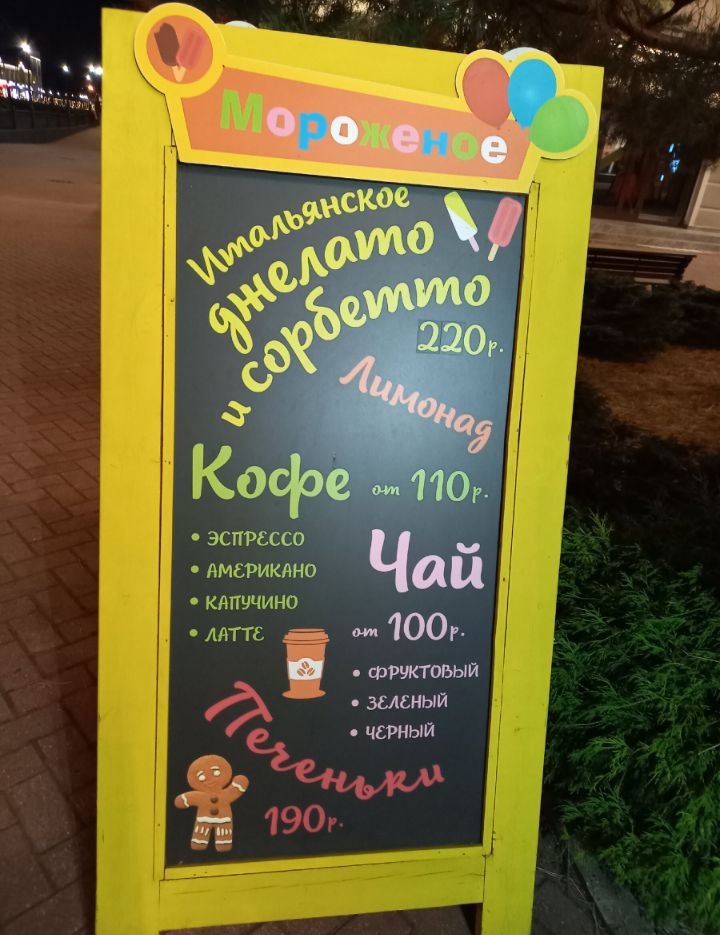 Мороженое
Итальянское
джелато
и сорбетто
220р.
Лимонад
Кофе от 110р.
• ЭСПРЕССО
• АМЕРИКАНО
• КАПУЧИНО
• ЛАТТЕ
Чай
от 100р.
• ФРУКТОВЫЙ
• ЗЕЛЕНЫЙ
• ЧЕРНЫЙ
Печеньки
190р.